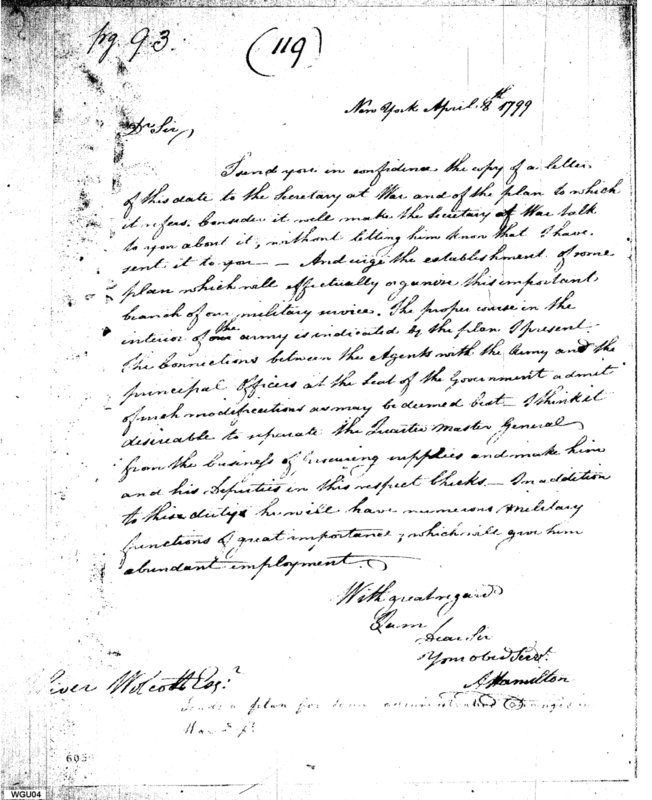 pg. 93.
(119)
New York April 8th 1799
Dr Sir,
I send you in confidence the copy of a letter
of this date to the Secretary at War and of the plan to which
it refers. Consider it well make the Secretary at War talk
to you about it, without letting him know that I have
sent it to you — And urge the establishment of some
plan which will effectually organise this important
branch of our military service. The proper course in the
interior of our the army is indicated by the plan I present.
The Connections between the Agents with the Army and the
principal Officers at the Seat of the Government admit
of such modifications as may be deemed best — I think it
desireable to separate the Quarter Master General
from the business of procuring supplies and make him
and his Deputies in this respect Checks. — In addition
to this duty he will have numerous military
functions of great importance; which will give him
abundant employment.
With great regard
I am
Dear Sir
Your obed Servt.
A Hamilton
iver Wolcott Esqr
Sends a plan for some administrative changes in
War Dpt.
605
WGU04